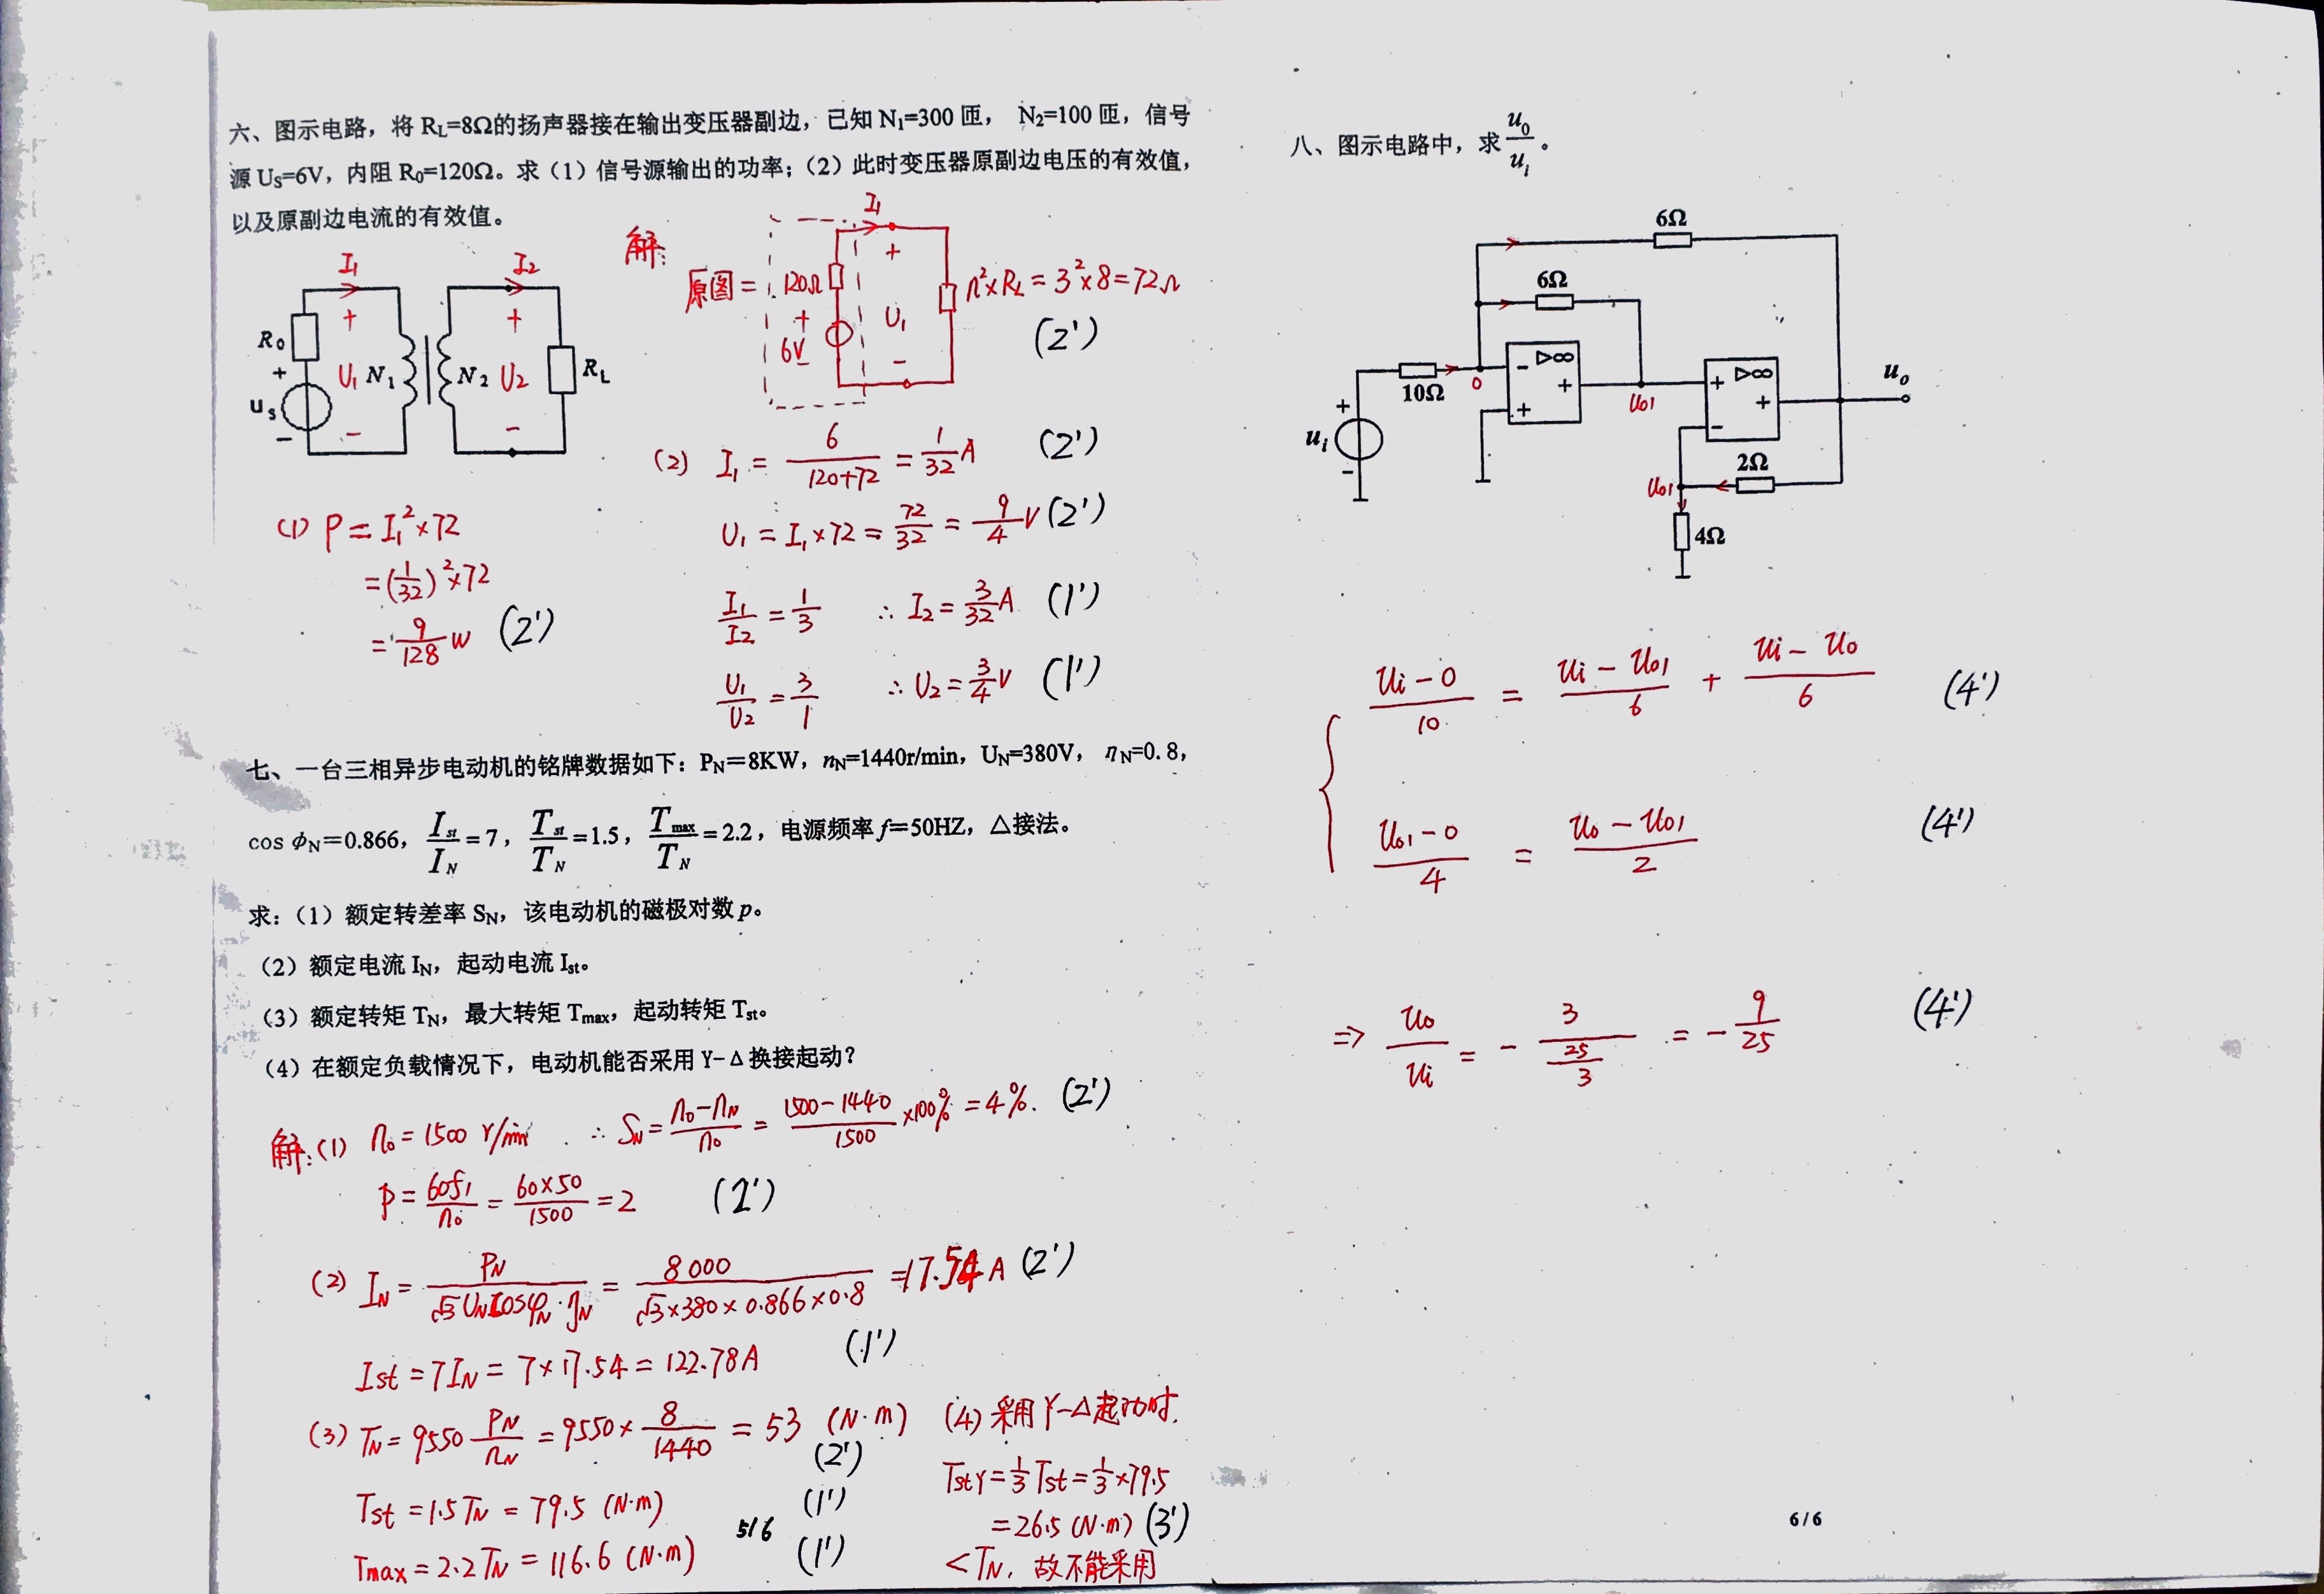 六、图示电路，将 RL=8Ω的扬声器接在输出变压器副边，已知 N1=300 匝， N2=100 匝，信号
源 US=6V，内阻 R0=120Ω。求（1）信号源输出的功率；（2）此时变压器原副边电压的有效值，
以及原副边电流的有效值。
I1
I2
R0
+
us
−
+
U1
−
N1
N2
+
U2
−
RL
解：
原图 =
120Ω
+
6V
−
I1
+
U1
−
n²×RL = 3²×8 = 72Ω
(2')
(1) P = I1²×72
= (1/32)²×72
= 9/128 W (2')
(2) I1 = 6/(120+72) = 1/32 A (2')
U1 = I1×72 = 72/32 = 9/4 V (2')
I1/I2 = 1/3 ∴ I2 = 3/32 A (1')
U1/U2 = 3/1 ∴ U2 = 3/4 V (1')
七、一台三相异步电动机的铭牌数据如下：PN＝8KW，nN=1440r/min，UN=380V， ηN=0.8，
cos ϕN＝0.866， Ist/IN = 7， Tst/TN = 1.5， Tmax/TN = 2.2，电源频率 f＝50HZ，△接法。
求：（1）额定转差率 SN，该电动机的磁极对数 p。
（2）额定电流 IN，起动电流 Ist。
（3）额定转矩 TN，最大转矩 Tmax，起动转矩 Tst。
（4）在额定负载情况下，电动机能否采用 Y-Δ 换接起动？
解：(1) n0 = 1500 r/min ∴ SN = (n0−nN)/n0 = (1500−1440)/1500 ×100% = 4%. (2')
p = 60f1/n0 = 60×50/1500 = 2 (2')
(2) IN = PN/(√3 UN cosφN·ηN) = 8000/(√3×380×0.866×0.8) = 17.54 A (2')
Ist = 7IN = 7×17.54 = 122.78A (1')
(3) TN = 9550 PN/nN = 9550× 8/1440 = 53 (N·m)
(2')
Tst = 1.5TN = 79.5 (N·m) (1')
Tmax = 2.2TN = 116.6 (N·m) (1')
(4) 采用Y-Δ起动时.
TstY = 1/3 Tst = 1/3 ×79.5
= 26.5 (N·m) (3')
< TN, 故不能采用
5/6
八、图示电路中，求 u0/ui 。
6Ω
6Ω
10Ω
0
−
▷∞
+
+
u01
+
▷∞
+
−
uo
+
ui
−
2Ω
u01
4Ω
(ui−0)/10 = (ui−u01)/6 + (ui−u0)/6 (4')
(u01−0)/4 = (u0−u01)/2 (4')
⇒ u0/ui = − 3/(25/3) = − 9/25 (4')
6/6